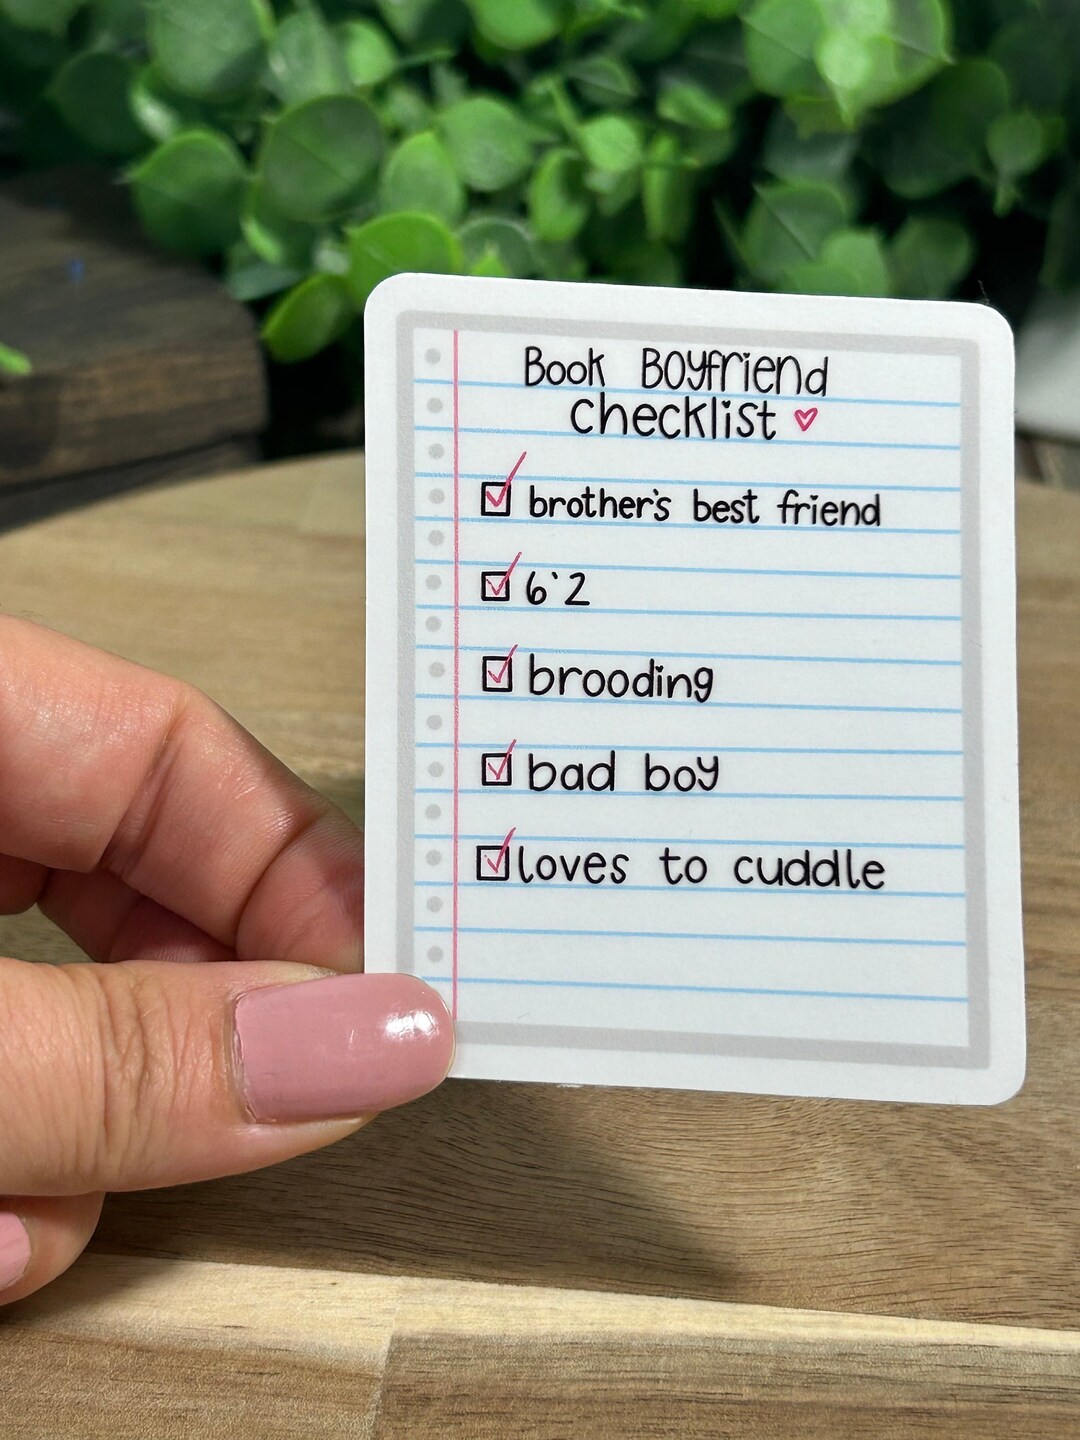 Book Boyfriend
checklist ♡
brother's best friend
6'2
brooding
bad boy
loves to cuddle